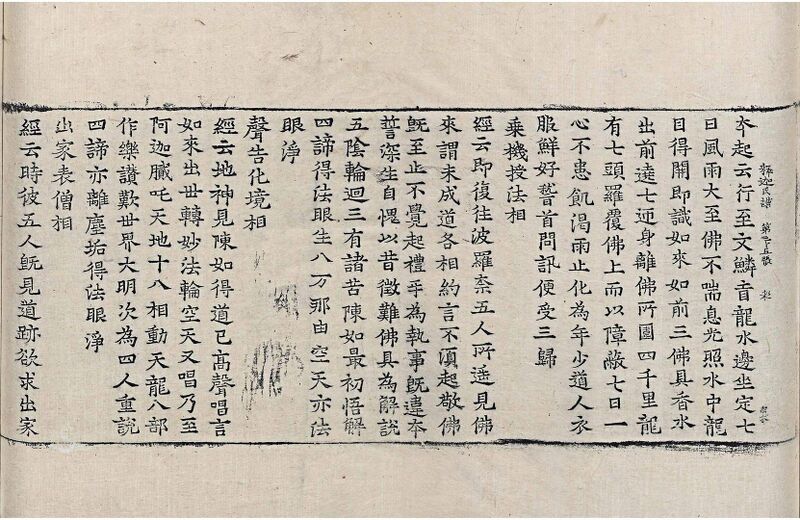 本起云行至文鱗盲龍水邊坐定七
日風雨大至佛不喘息光照水中龍
目得開即識如來如前三佛具香水
出前遶七迊身離佛所圍四千里龍
有七頭羅覆佛上而以障蔽七日一
心不患飢渴雨止化為年少道人衣
服鮮好誓首問訊便受三歸
乘機授法相
經云即復往波羅柰五人所遙見佛
來謂未成道各相約言不湏起敬佛
旣至止不覺起禮乎為執事旣違本
誓深生自愧以昔徵難佛具為解說
五陰輪迴三有諸苦陳如最初悟解
四諦得法眼生八万那由空天亦法
眼淨
聲告化境相
經云地神見陳如得道已高聲唱言
如來出世轉妙法輪空天又唱乃至
阿迦膩吒天地十八相動天龍八部
作樂讃歎世界大明次為四人重說
四諦亦離塵垢得法眼淨
出家表僧相
經云時彼五人旣見道跡欲求出家